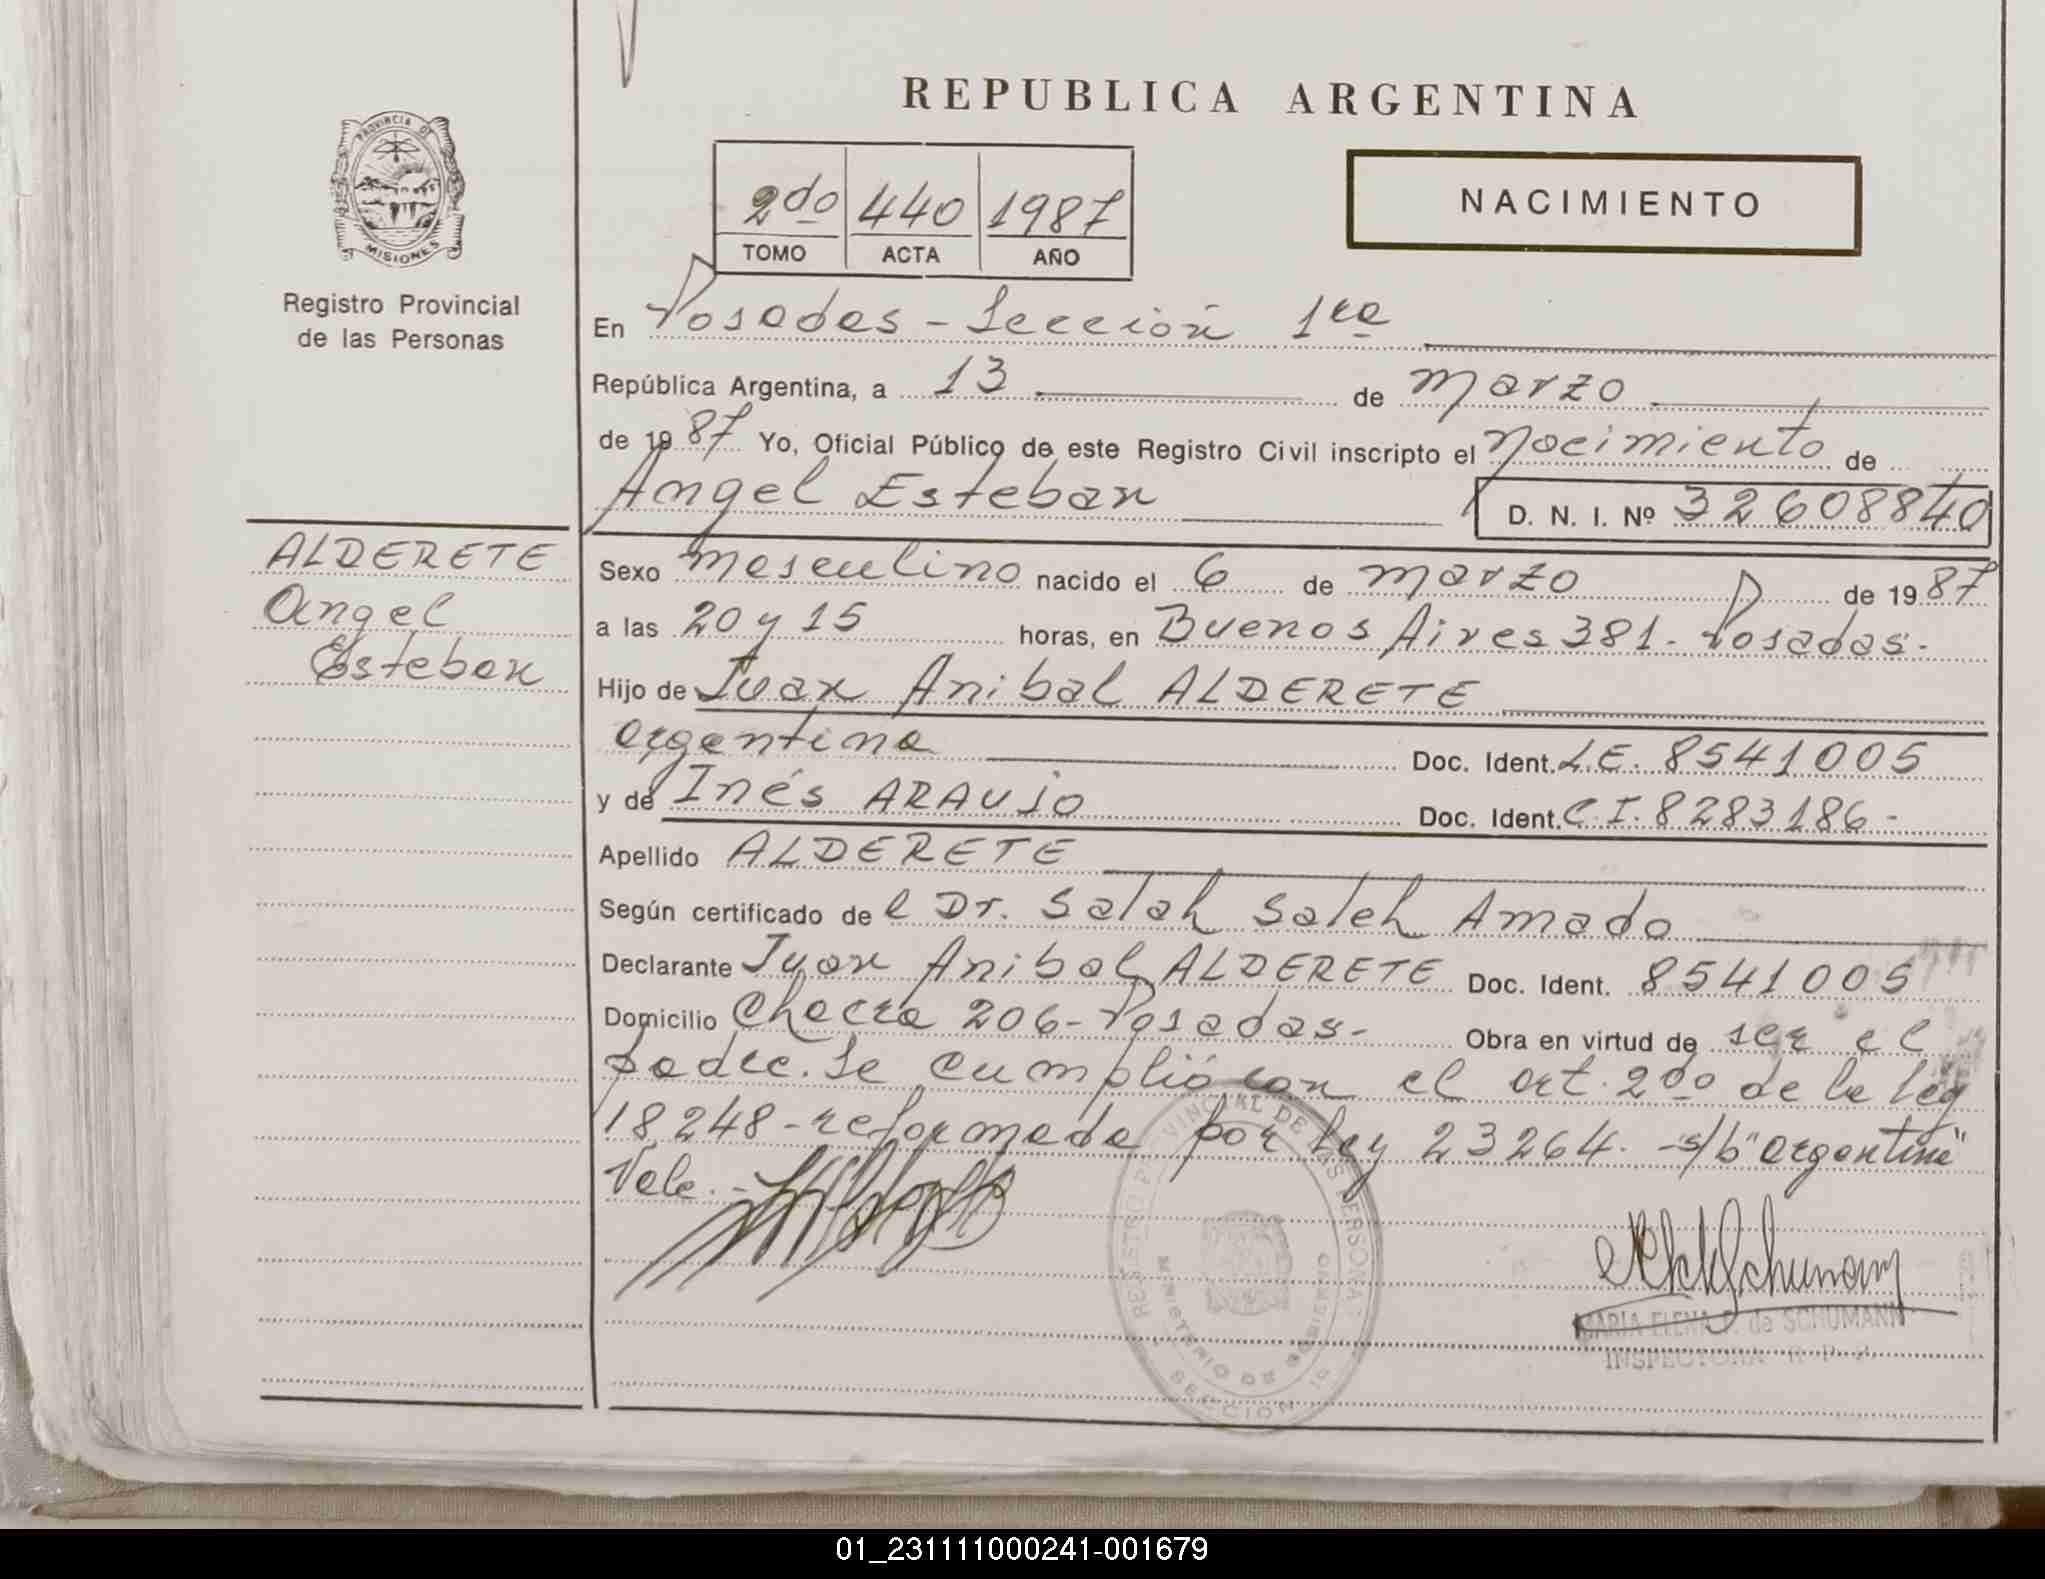 REPUBLICA ARGENTINA
PROVINCIA DE
MISIONES
Registro Provincial
de las Personas
2do 440 1987
TOMO ACTA AÑO
NACIMIENTO
En Posadas - Sección 1ra
República Argentina, a 13 de marzo
de 1987 Yo, Oficial Público de este Registro Civil inscripto el Nacimiento de
Angel Esteban
D. N. I. Nº 32608840
ALDERETE
Angel
Esteban
Sexo masculino nacido el 6 de marzo de 1987
a las 20 y 15 horas, en Buenos Aires 381- Posadas-
Hijo de Juan Anibal ALDERETE
argentina Doc. Ident. L.E. 8541005
y de Inés ARAUJO Doc. Ident. C.I. 8283186-
Apellido ALDERETE
Según certificado de l Dr. Salah Saleh Amado
Declarante Juan Anibal ALDERETE Doc. Ident. 8541005
Domicilio Chacra 206- Posadas- Obra en virtud de ser el
padre. Se cumplió con el art. 2do de la ley
18248- reformada por ley 23264. - s/b "argentina"
Vale.-
REGISTRO PROVINCIAL DE LAS PERSONAS
MINISTERIO DE GOBIERNO
SECCION 1a
MARIA ELENA F. de SCHUMANN
INSPECTORA R. P. P.
01_231111000241-001679